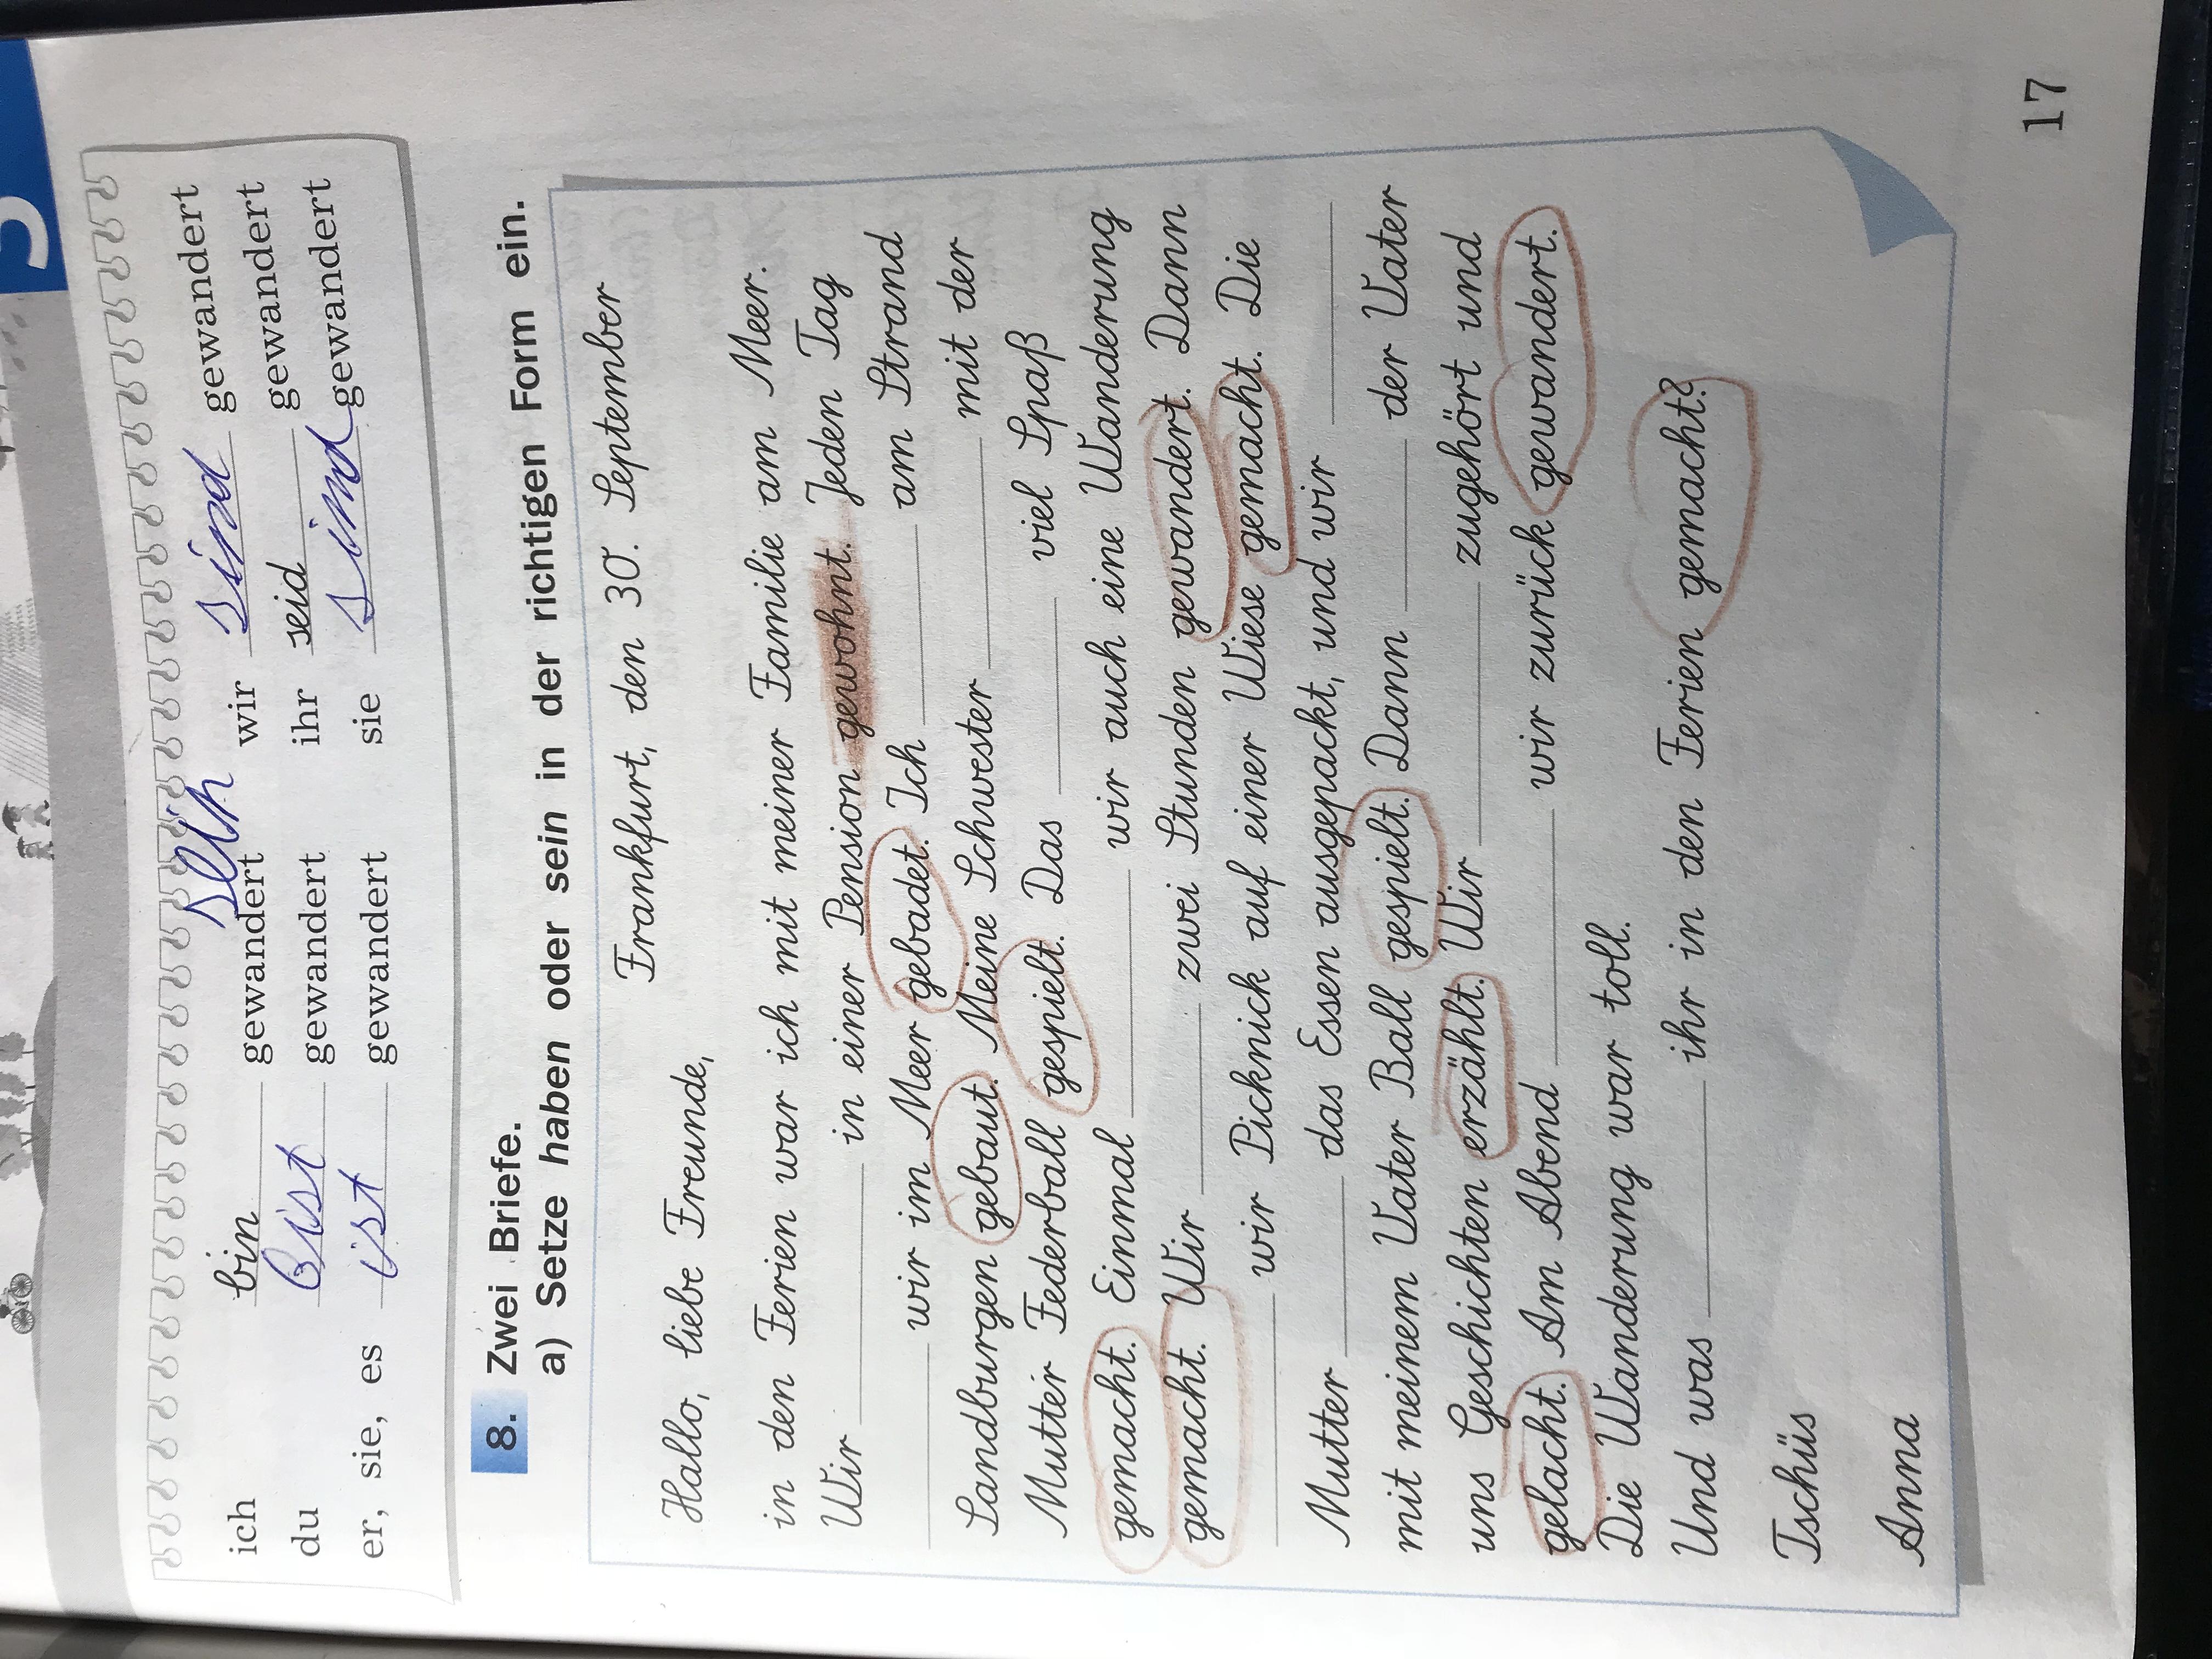 selh
ich bin gewandert wir sind gewandert
du bist gewandert ihr seid gewandert
er, sie, es ist gewandert sie sind gewandert
8. Zwei Briefe.
a) Setze haben oder sein in der richtigen Form ein.
Frankfurt, den 30. September
Hallo, liebe Freunde,
in den Ferien war ich mit meiner Familie am Meer.
Wir ______ in einer Pension gewohnt. Jeden Tag
______ wir im Meer gebadet. Ich ______ am Strand
Sandburgen gebaut. Meine Schwester ______ mit der
Mutter Federball gespielt. Das ______ viel Spaß
gemacht. Einmal ______ wir auch eine Wanderung
gemacht. Wir ______ zwei Stunden gewandert. Dann
______ wir Picknick auf einer Wiese gemacht. Die
Mutter ______ das Essen ausgepackt, und wir ______
mit meinem Vater Ball gespielt. Dann ______ der Vater
uns Geschichten erzählt. Wir ______ zugehört und
gelacht. Am Abend ______ wir zurück gewandert.
Die Wanderung war toll.
Und was ______ ihr in den Ferien gemacht?
Tschüs
Anna
17